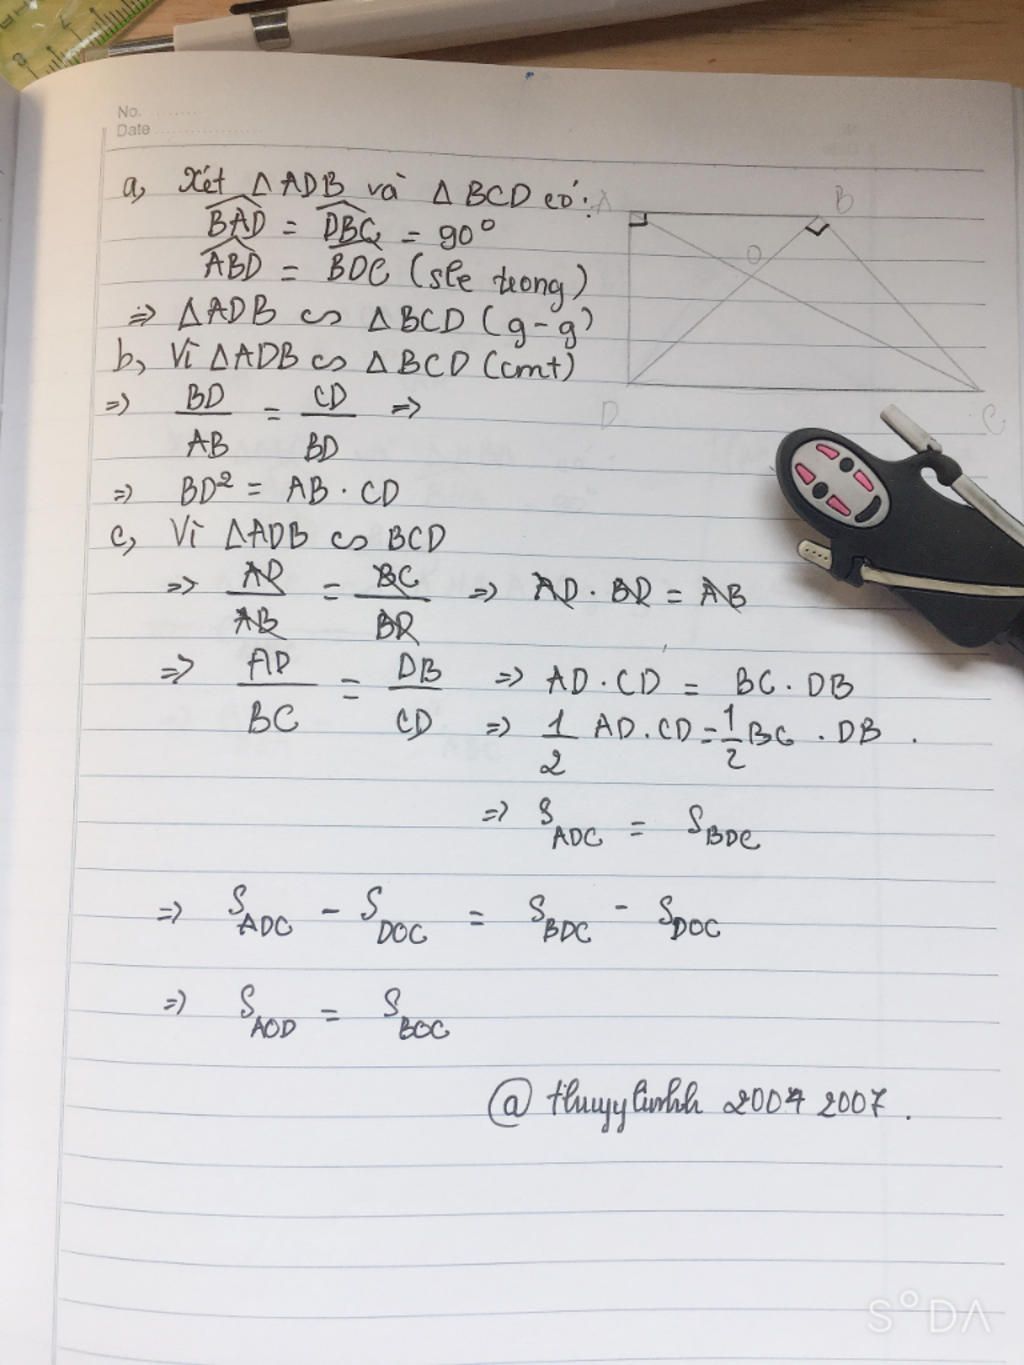 No.
Date
a, Xét △ADB và △BCD có:
BAD = DBC = 90°
ABD = BDC (sle trong)
⇒ △ADB ∽ △BCD (g-g)
b, Vì △ADB ∽ △BCD (cmt)
⇒ BD/AB = CD/BD ⇒
⇒ BD² = AB . CD
c, Vì △ADB ∽ BCD
⇒ AD/AB = BC/BD ⇒ AD . BD = AB
⇒ AD/BC = DB/CD ⇒ AD . CD = BC . DB
⇒ 1/2 AD . CD = 1/2 BC . DB .
⇒ S ADC = S BDC
⇒ S ADC - S DOC = S BDC - S DOC
⇒ S AOD = S BOC
@ thuyylinhh 2004 2007 .
A
B
O
D
C
S°DA